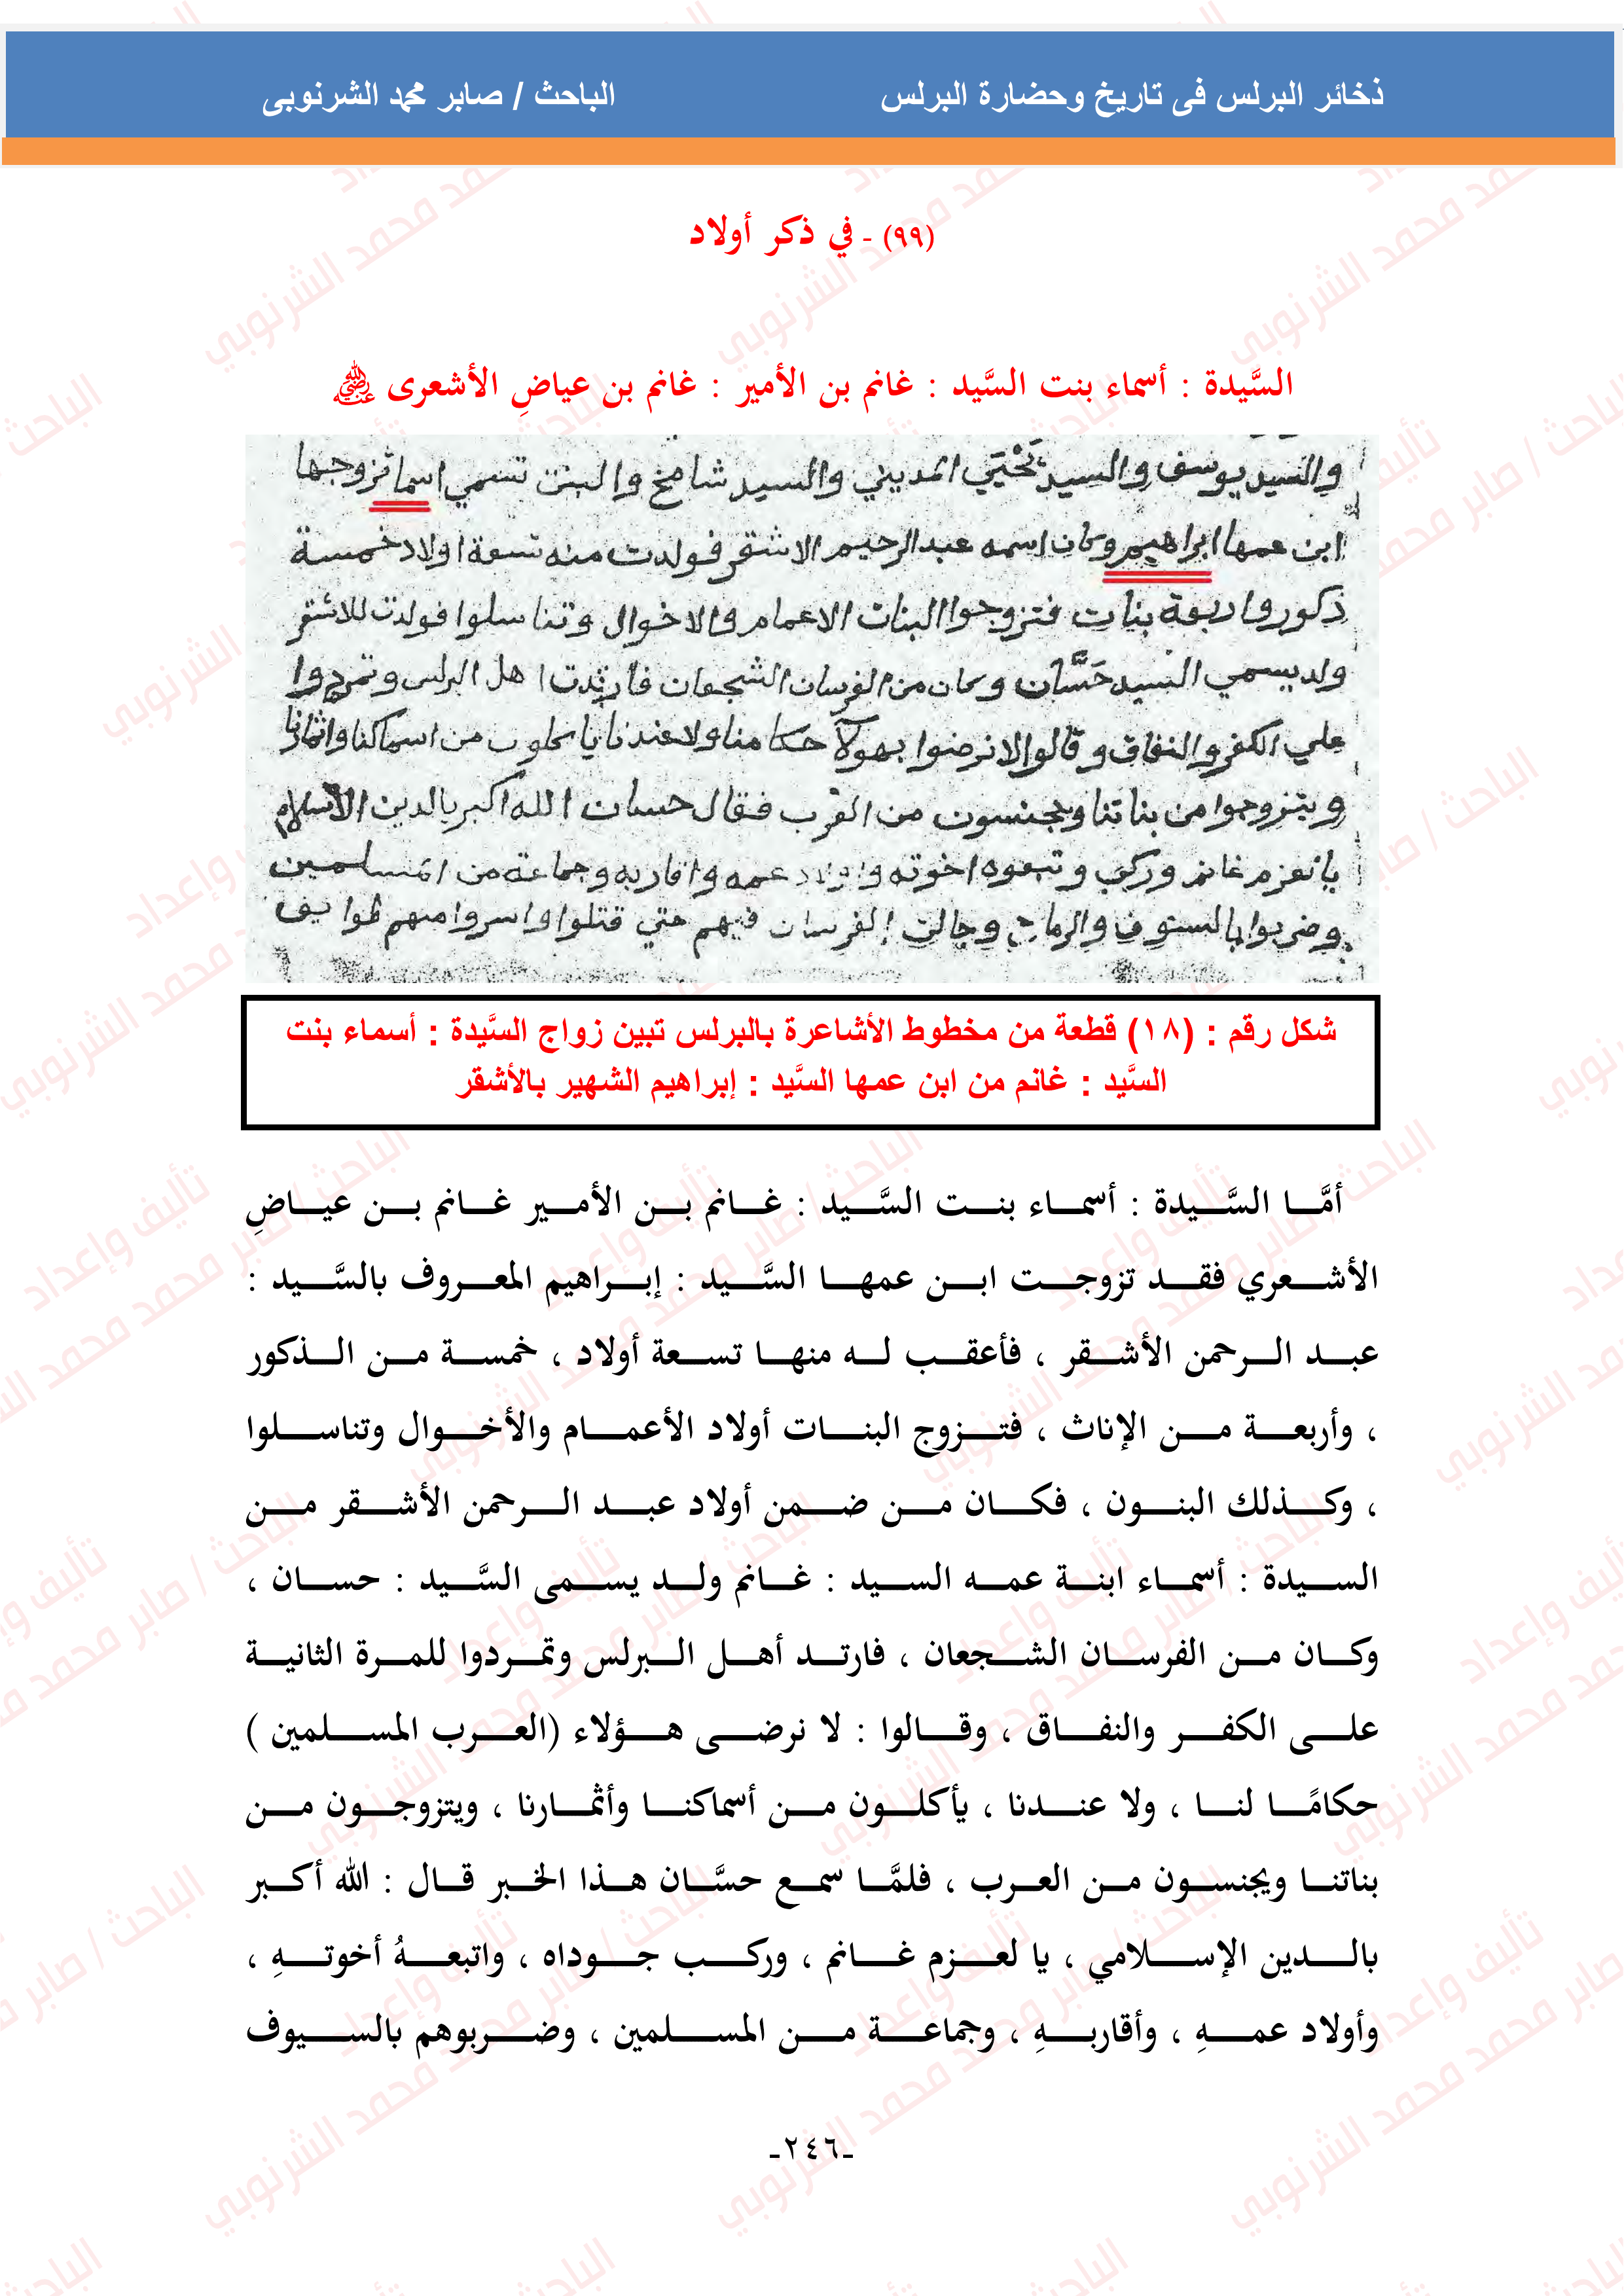 ذخائر البرلس فى تاريخ وحضارة البرلس الباحث / صابر محمد الشرنوبى
(٩٩) - في ذكر أولاد
السَّيدة : أسماء بنت السَّيد : غانم بن الأمير : غانم بن عياضِ الأشعرى ﵁
والسيد يوسف والسيد يَحْيَي المديني والسيد شامخ والبنت تسمي اسما تزوجها
ابن عمها ابراهيم وكان اسمه عبد الرحيم الاشقر فولدت منه تسعة اولاد خمسة
ذكور واربعة بنات فتزوجوا البنات الاعمام والاخوال وتناسلوا فولدت للاشقر
ولد يسمي السيد حَسَّان وكان من الفرسان الشجعان فارتدت اهل البرلس وتمردوا
علي الكفر والنفاق وقالوا لا نرضوا بهولآ حكامنا ولا عندنا ياكلوب من اسماكنا واثمارنا
ويتزوجوا من بناتنا ويجنسون من العرب فقال حسان الله اكبر بالدين الاسلام
يا لعزم غانم وركب وتبعوه اخوته واولاد عمه واقاربه وجماعة من المسلمين
وضربوا بالسيوف والرماح وجالت الفرسان فيهم حتي قتلوا واسروا منهم طوايف
شكل رقم : (١٨) قطعة من مخطوط الأشاعرة بالبرلس تبين زواج السَّيدة : أسماء بنت
السَّيد : غانم من ابن عمها السَّيد : إبراهيم الشهير بالأشقر
أمَّا السَّيدة : أسماء بنت السَّيد : غانم بن الأمير غانم بن عياضِ
الأشعري فقد تزوجت ابن عمها السَّيد : إبراهيم المعروف بالسَّيد :
عبد الرحمن الأشقر ، فأعقب له منها تسعة أولاد ، خمسة من الذكور
، وأربعة من الإناث ، فتزوج البنات أولاد الأعمام والأخوال وتناسلوا
، وكذلك البنون ، فكان من ضمن أولاد عبد الرحمن الأشقر من
السيدة : أسماء ابنة عمه السيد : غانم ولد يسمى السَّيد : حسان ،
وكان من الفرسان الشجعان ، فارتد أهل البرلس وتمردوا للمرة الثانية
على الكفر والنفاق ، وقالوا : لا نرضى هؤلاء (العرب المسلمين )
حكامًا لنا ، ولا عندنا ، يأكلون من أسماكنا وأثمارنا ، ويتزوجون من
بناتنا ويجنسون من العرب ، فلمَّا سمع حسَّان هذا الخبر قال : الله أكبر
بالدين الإسلامي ، يا لعزم غانم ، وركب جوداه ، واتبعهُ أخوتهِ ،
وأولاد عمهِ ، وأقاربهِ ، وجماعة من المسلمين ، وضربوهم بالسيوف
-٢٤٦-